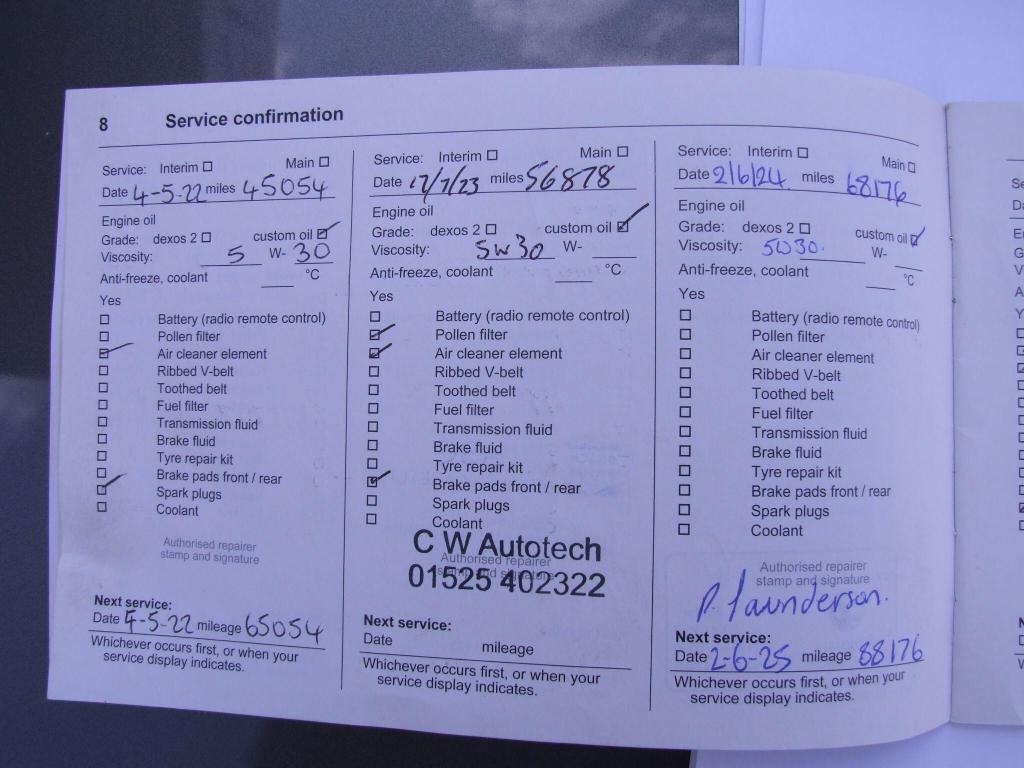 8 Service confirmation
Service: Interim Main
Date 4-5-22 miles 45054
Engine oil
Grade: dexos 2 custom oil
Viscosity: 5 W- 30
Anti-freeze, coolant °C
Yes
Battery (radio remote control)
Pollen filter
Air cleaner element
Ribbed V-belt
Toothed belt
Fuel filter
Transmission fluid
Brake fluid
Tyre repair kit
Brake pads front / rear
Spark plugs
Coolant
Authorised repairer
stamp and signature
Next service:
Date 4-5-22 mileage 65054
Whichever occurs first, or when your
service display indicates.
Service: Interim Main
Date 17/7/23 miles 56878
Engine oil
Grade: dexos 2 custom oil
Viscosity: 5W30 W-
Anti-freeze, coolant °C
Yes
Battery (radio remote control)
Pollen filter
Air cleaner element
Ribbed V-belt
Toothed belt
Fuel filter
Transmission fluid
Brake fluid
Tyre repair kit
Brake pads front / rear
Spark plugs
Coolant
C W Autotech
Authorised repairer
stamp and signature
01525 402322
Next service:
Date mileage
Whichever occurs first, or when your
service display indicates.
Service: Interim Main
Date 2/6/24 miles 68176
Engine oil
Grade: dexos 2 custom oil
Viscosity: 5W30. W-
Anti-freeze, coolant °C
Yes
Battery (radio remote control)
Pollen filter
Air cleaner element
Ribbed V-belt
Toothed belt
Fuel filter
Transmission fluid
Brake fluid
Tyre repair kit
Brake pads front / rear
Spark plugs
Coolant
Authorised repairer
stamp and signature
P. Saunderson.
Next service:
Date 2-6-25 mileage 88176
Whichever occurs first, or when your
service display indicates.